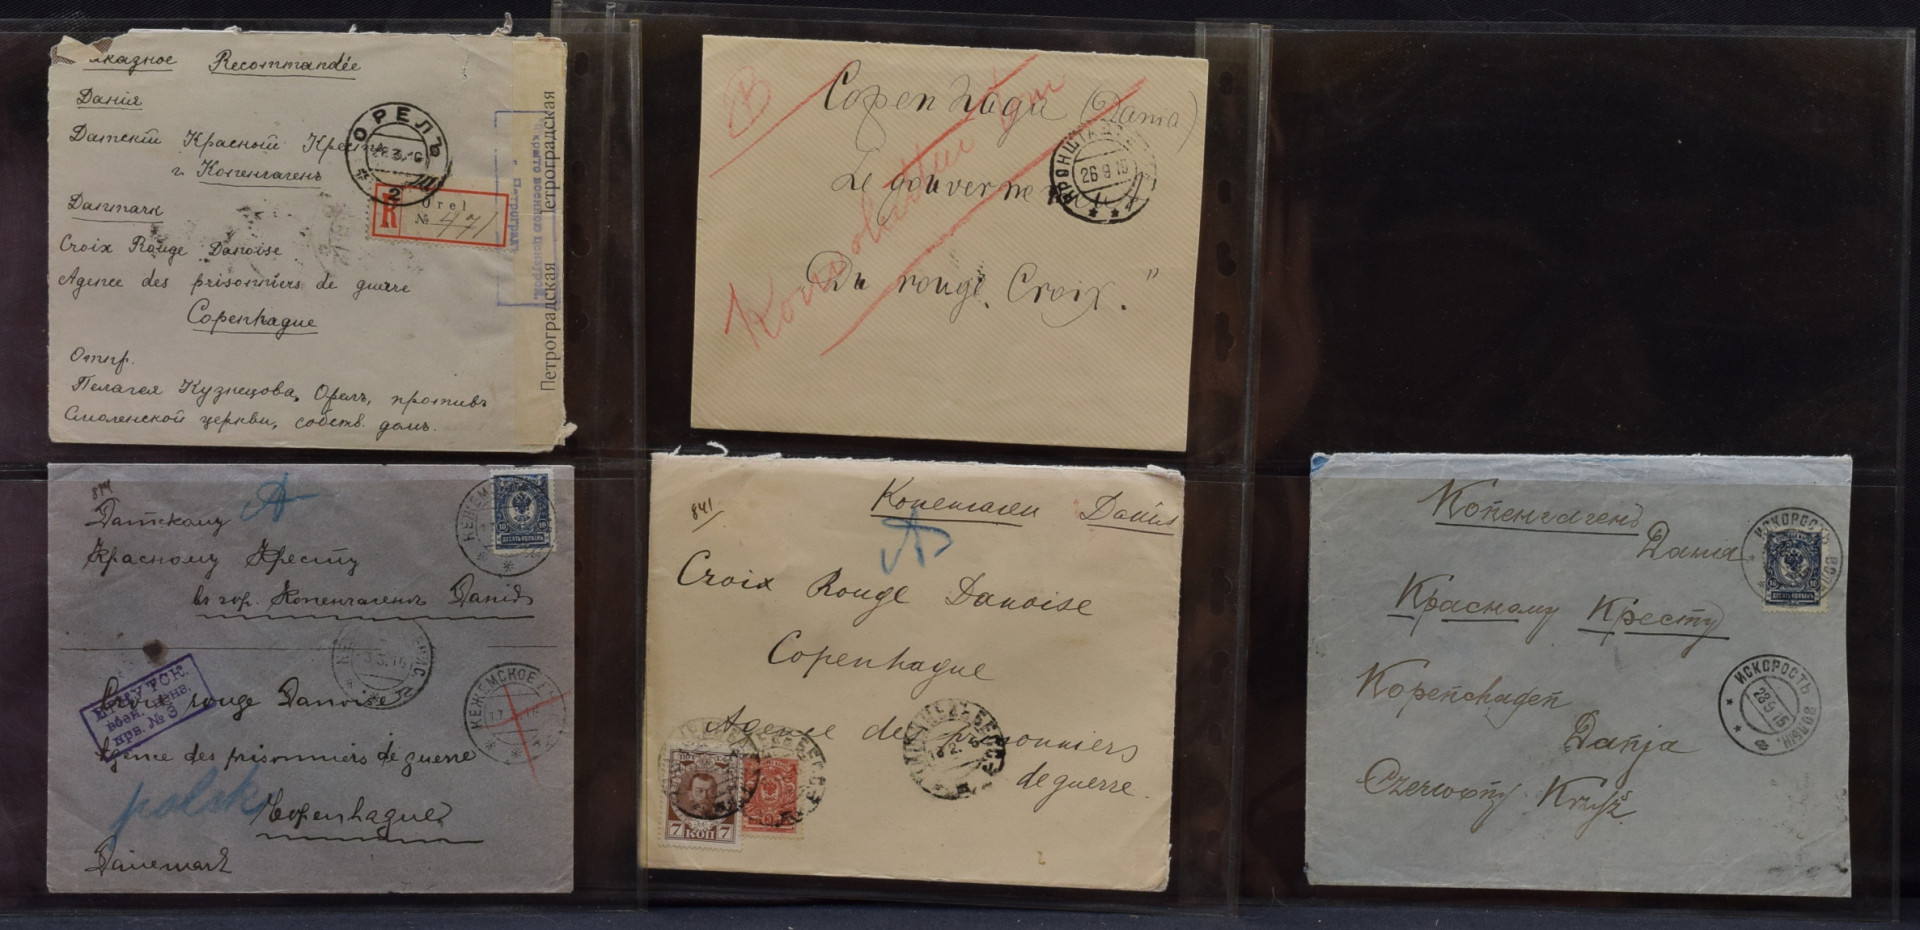 Recommandée
Данія
Датскій Красный Крестъ
г. Копенгагенъ
Danmark
Croix Rouge Danoise
Agence des prisonniers de guerre
Copenhague
Отпр.
Пелагея Кузнецова, Орелъ, противъ
Смоленской церкви, собств. домъ.
ОРЕЛЪ
2
R
Orel
№ 471
Петроградская
Петроградская
Copenhaga (Dania)
Le gouvernement
Du rouge Croix."
КРОНШТАДТ
26 9 15
874
Датскому
Красному Кресту
въ гор. Копенгагенъ Daniя
Croix rouge Danoise
Agence des prisonniers de guerre
Copenhague
Dänemark
polsk
ИРКУТСК.
воен. ценз.
прв. № 3
КЕЖЕМСКОЕ
ДЕСЯТЬ КОПѢЕКЪ
841
Копенгаген Данія
Croix Rouge Danoise
Copenhague
Agence de prisonniers
de guerre.
7 КОП 7
Копенгагенъ
Данія
Красному Кресту
Kopenhagen
Danja
Czerwony Krzyż
ИСКОРОСТЬ ВОЛЫН.
28 9 16